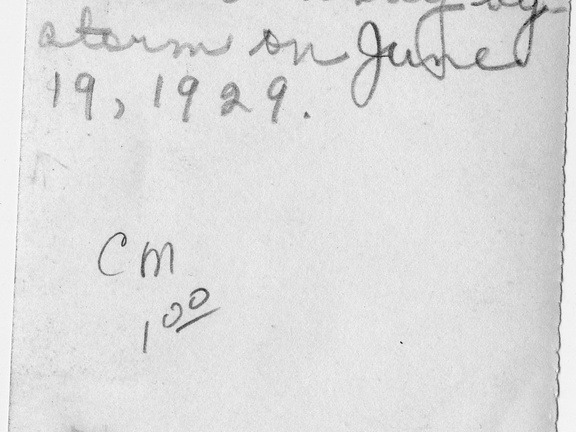 by
storm on June
19, 1929.
CM
1 00